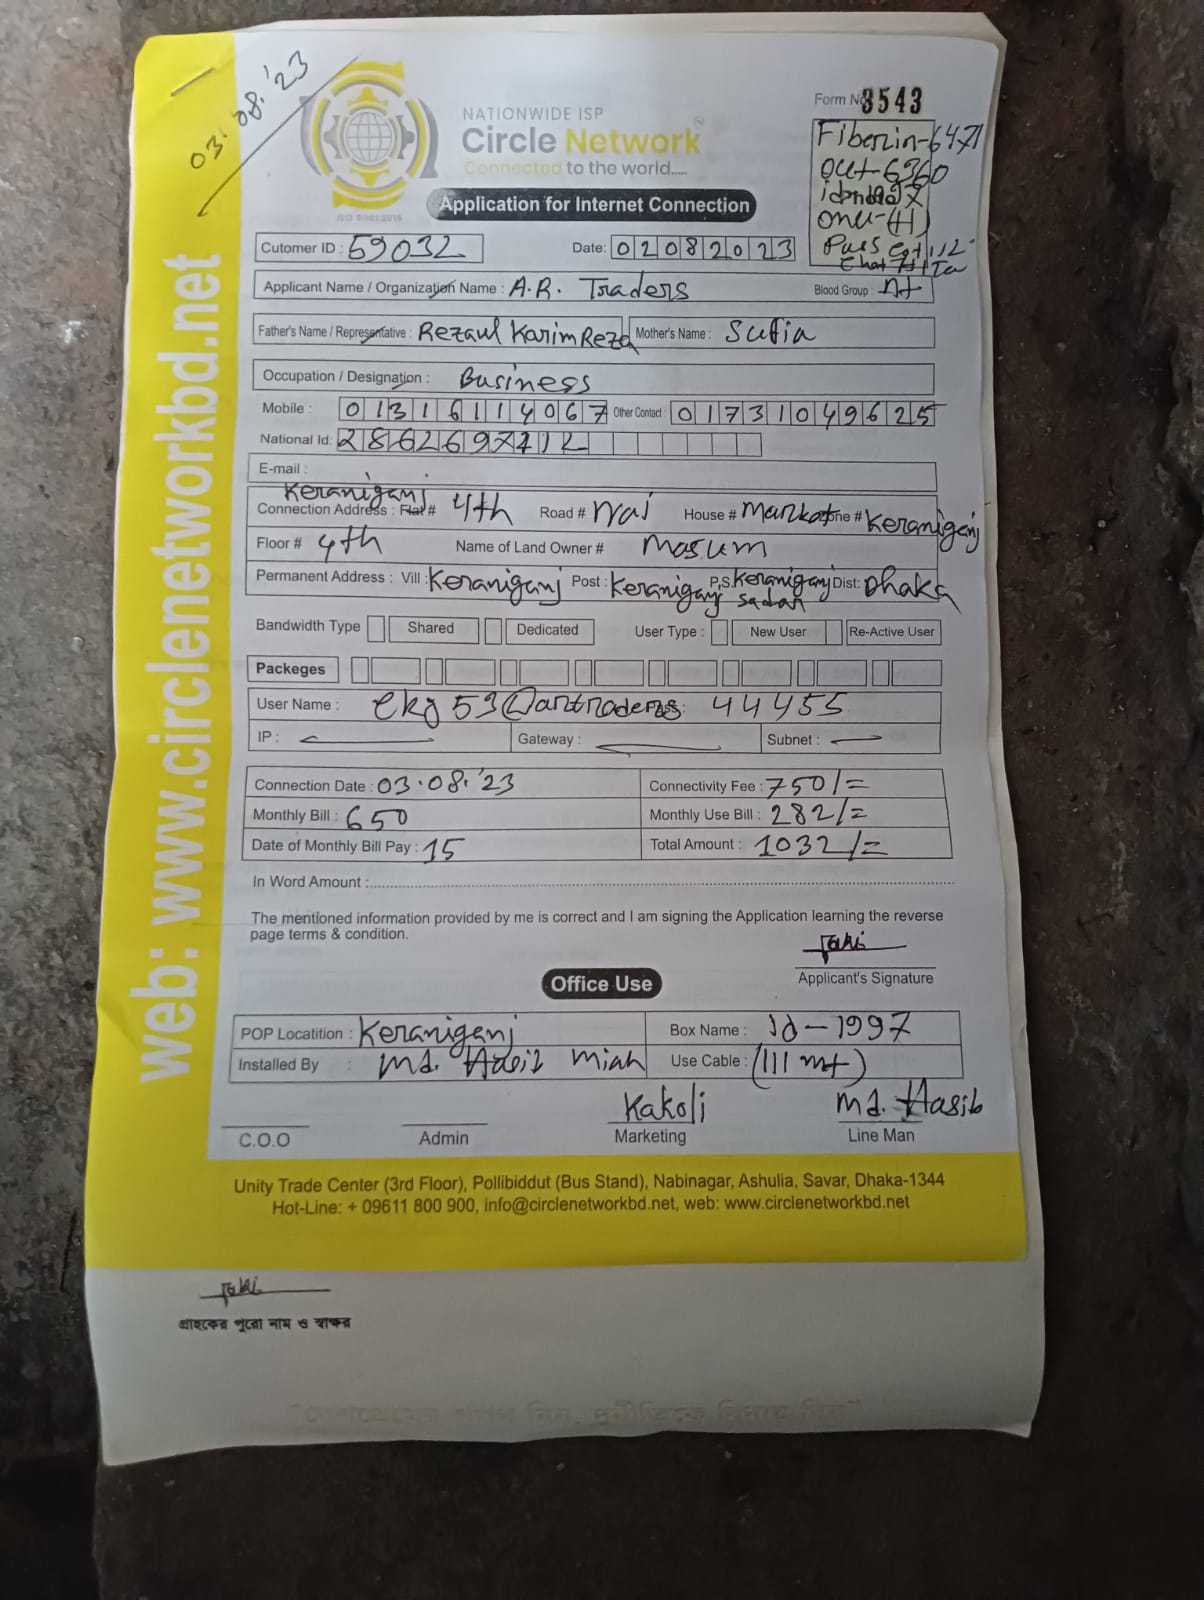 03.08.'23
NATIONWIDE ISP
Circle Network
Connected to the world.....
ISO 9001:2015
Application for Internet Connection
Form No 3543
Fiberin-6471
out-6360
onu-(H)
Pass
Cutomer ID : 59032 Date: 02082023
Applicant Name / Organization Name : A.R. Traders Blood Group : A+
Father's Name / Representative : Rezaul Karim Reza Mother's Name : Sufia
Occupation / Designation : Business
Mobile : 01316114067 Other Contact : 01731049625
National Id: 2862697712
E-mail :
Keraniganj
Connection Address : Flat # 4th Road # House # Market Zone # Keraniganj
Floor # 4th Name of Land Owner # Masum
Permanent Address : Vill : Keraniganj Post : Keraniganj P.S. Keraniganj sadar Dist: Dhaka
Bandwidth Type Shared Dedicated User Type : New User Re-Active User
Packeges
User Name : ekg53@artraders Pass: 44455
IP : Gateway : Subnet :
Connection Date : 03.08.'23 Connectivity Fee : 750/=
Monthly Bill : 650 Monthly Use Bill : 282/=
Date of Monthly Bill Pay : 15 Total Amount : 1032/=
In Word Amount :
The mentioned information provided by me is correct and I am signing the Application learning the reverse
page terms & condition.
Applicant's Signature
Office Use
POP Locatition : Keraniganj Box Name : Id-1997
Installed By : Md. Hasib Miah Use Cable : (111 mt)
Kakoli Md. Hasib
C.O.O Admin Marketing Line Man
Unity Trade Center (3rd Floor), Pollibiddut (Bus Stand), Nabinagar, Ashulia, Savar, Dhaka-1344
Hot-Line: + 09611 800 900, info@circlenetworkbd.net, web: www.circlenetworkbd.net
web: www.circlenetworkbd.net
গ্রাহকের পুরো নাম ও স্বাক্ষর